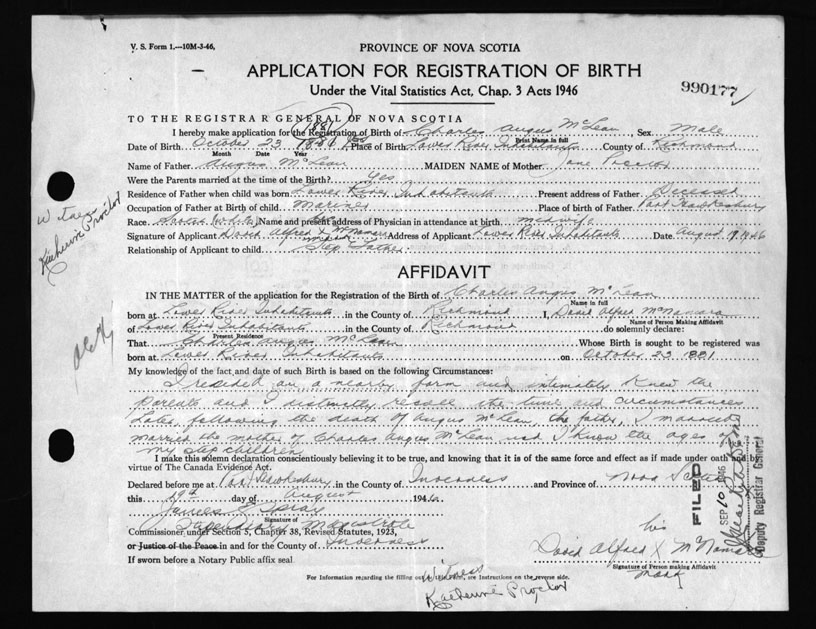 V. S. Form 1.—10M-3-46,
PROVINCE OF NOVA SCOTIA
APPLICATION FOR REGISTRATION OF BIRTH
Under the Vital Statistics Act, Chap. 3 Acts 1946
990177
TO THE REGISTRAR GENERAL OF NOVA SCOTIA
1881
I hereby make application for the Registration of Birth of Charles Angus McLean Sex Male
Print Name in full
Date of Birth October 23 Place of Birth Lower River Inhabitants County of Richmond
Month Date Year
Name of Father Angus McLean MAIDEN NAME of Mother Jane Proctor
Were the Parents married at the time of the Birth? Yes
Residence of Father when child was born Lower River Inhabitants Present address of Father Deceased
Occupation of Father at Birth of child Mariner Place of birth of Father Port Hawkesbury
Race Scotch (White) Name and present address of Physician in attendance at birth midwife
Signature of Applicant David Alfred X McNamara Address of Applicant Lower River Inhabitants Date August 19, 1946
Relationship of Applicant to child Step Father
Witness
Katherine Proctor
AFFIDAVIT
IN THE MATTER of the application for the Registration of the Birth of Charles Angus McLean
Name in full
born at Lower River Inhabitants in the County of Richmond I, David Alfred McNamara
Name of Person Making Affidavit
of Lower River Inhabitants in the County of Richmond do solemnly declare:
Present Residence
That Charles Angus McLean Whose Birth is sought to be registered was
born at Lower River Inhabitants on October 23 1881
My knowledge of the fact and date of such Birth is based on the following Circumstances:
I resided on a nearby farm and intimately knew the
parents and I distinctly recall the time and circumstances
Later, following the death of Angus McLean, the father, I married
married the mother of Charles Angus McLean and I know the ages of
my step children
I make this solemn declaration conscientiously believing it to be true, and knowing that it is of the same force and effect as if made under oath and by
virtue of The Canada Evidence Act.
Declared before me at Port Hawkesbury in the County of Inverness and Province of Nova Scotia
this 19th day of August 1946
James
Signature of
Stipendiary Magistrate
Commissioner under Section 5, Chapter 38, Revised Statutes, 1923,
or Justice of the Peace in and for the County of Inverness
If sworn before a Notary Public affix seal
his
David Alfred X McNamara
Signature of Person making Affidavit
mark
FILED
SEP 10 1946
Deputy Registrar General
For Information regarding the filling out of this Form, see Instructions on the reverse side.
Witness
Katherine Proctor